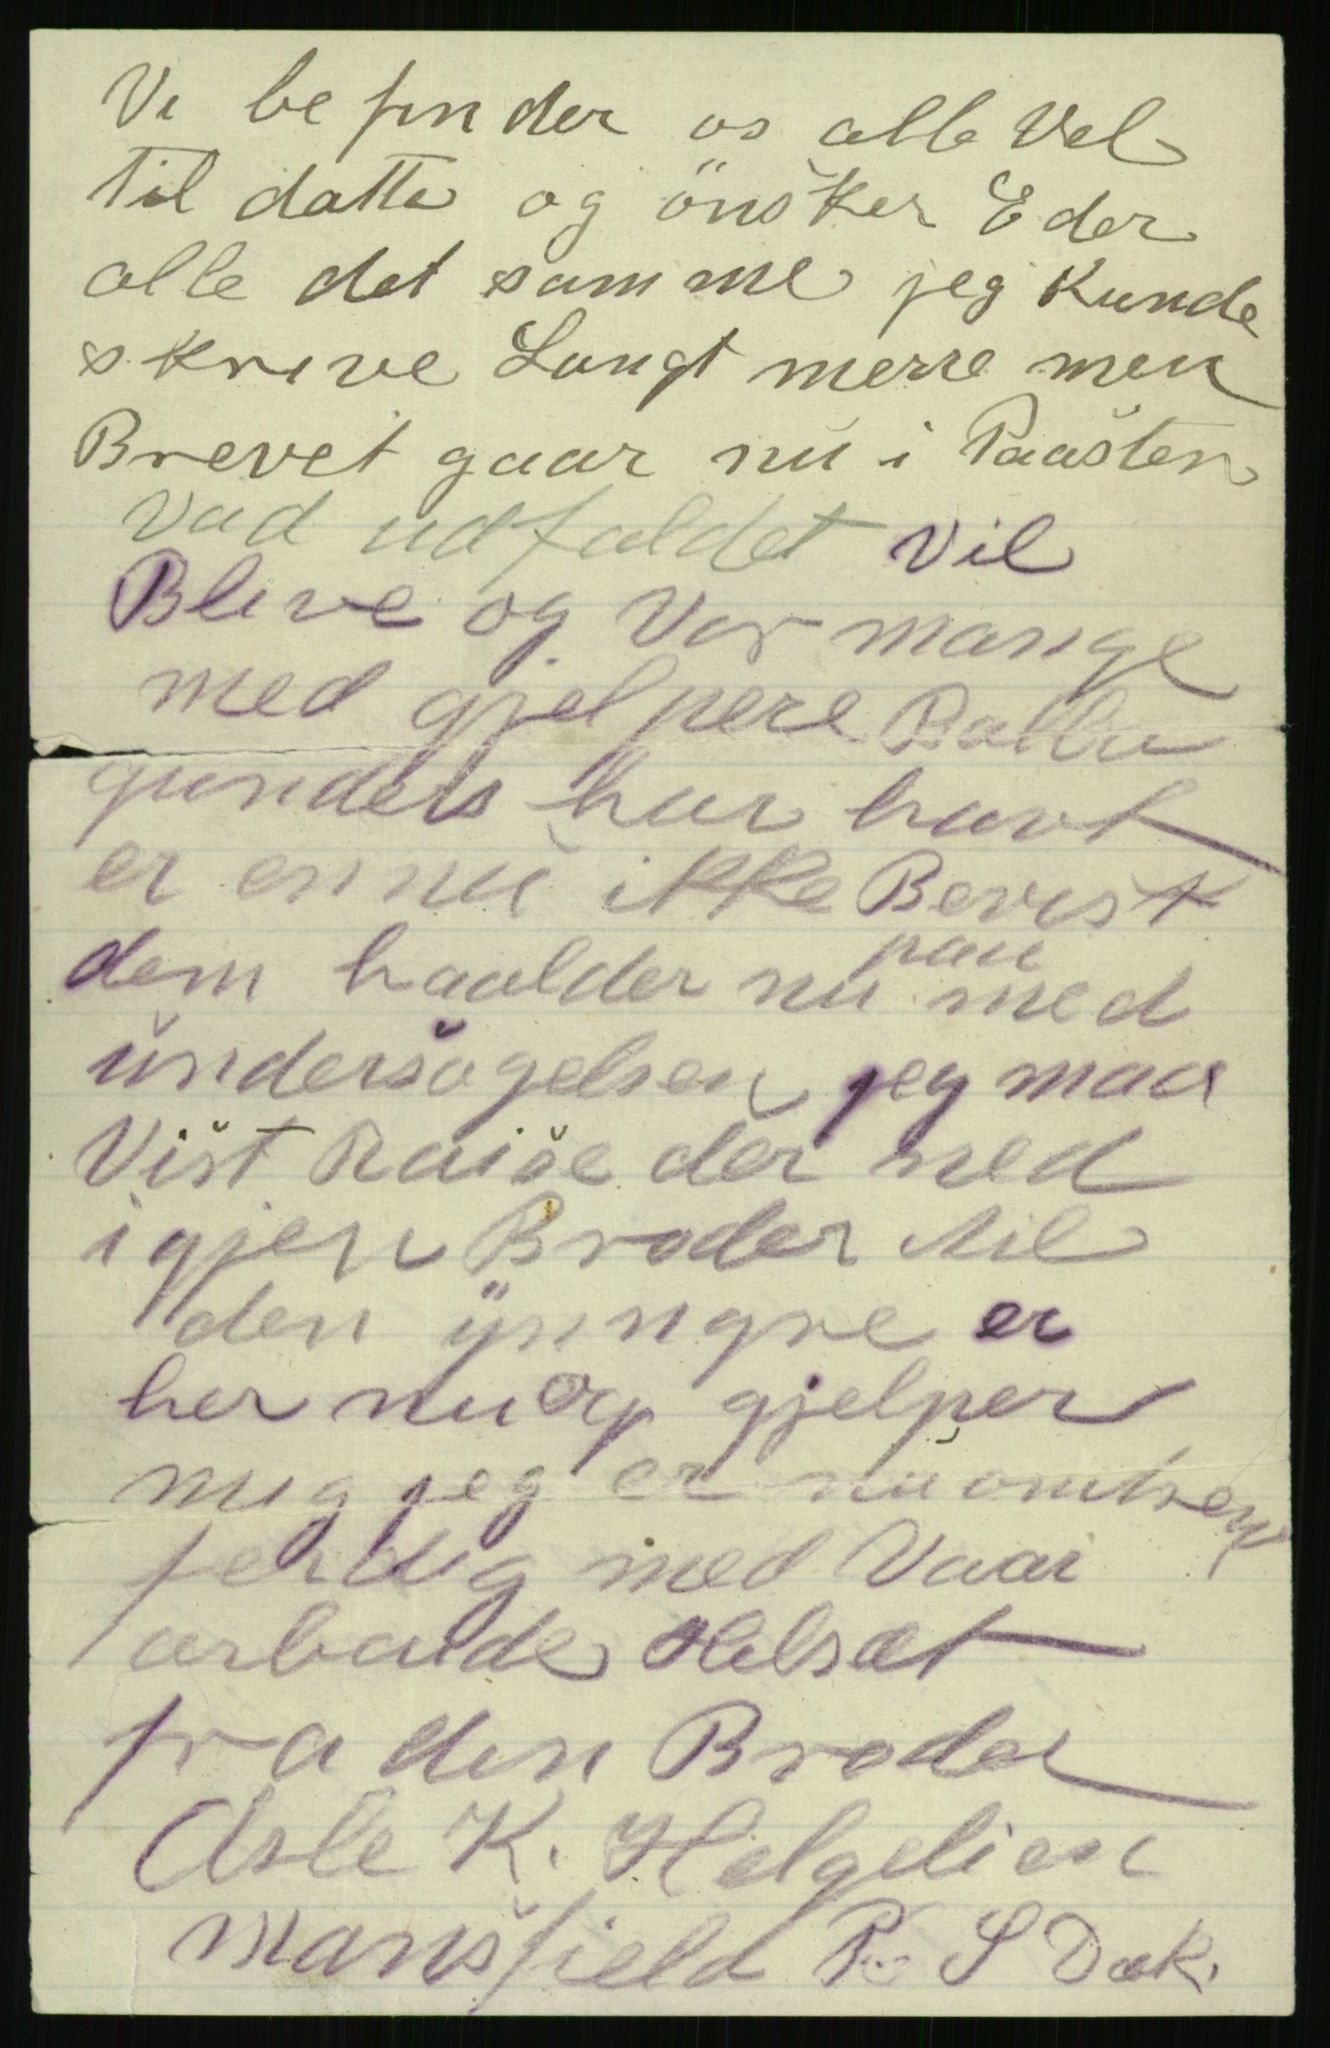 Vi be finder os alle Vel
til datte og önsker Eder
alle det samme jeg Kunde
skrive Langt merre men
Brevet gaar nu i Paasten
Vad udfaldet vil
Blive og Vor mange
med gjelpere Balla
gunders har havt
er ennu ikke Bevist
dem haalder nu paa med
undersögelsen jeg maa
Vist Raise der ned
igjen Broder til
den yngre er
her nu og gjelper
mig jeg er nu omtren
ferdig med Vaar
arbaide Helsat
fra den Broder
Asle K. Helgelien
mansfield P. S Dak.